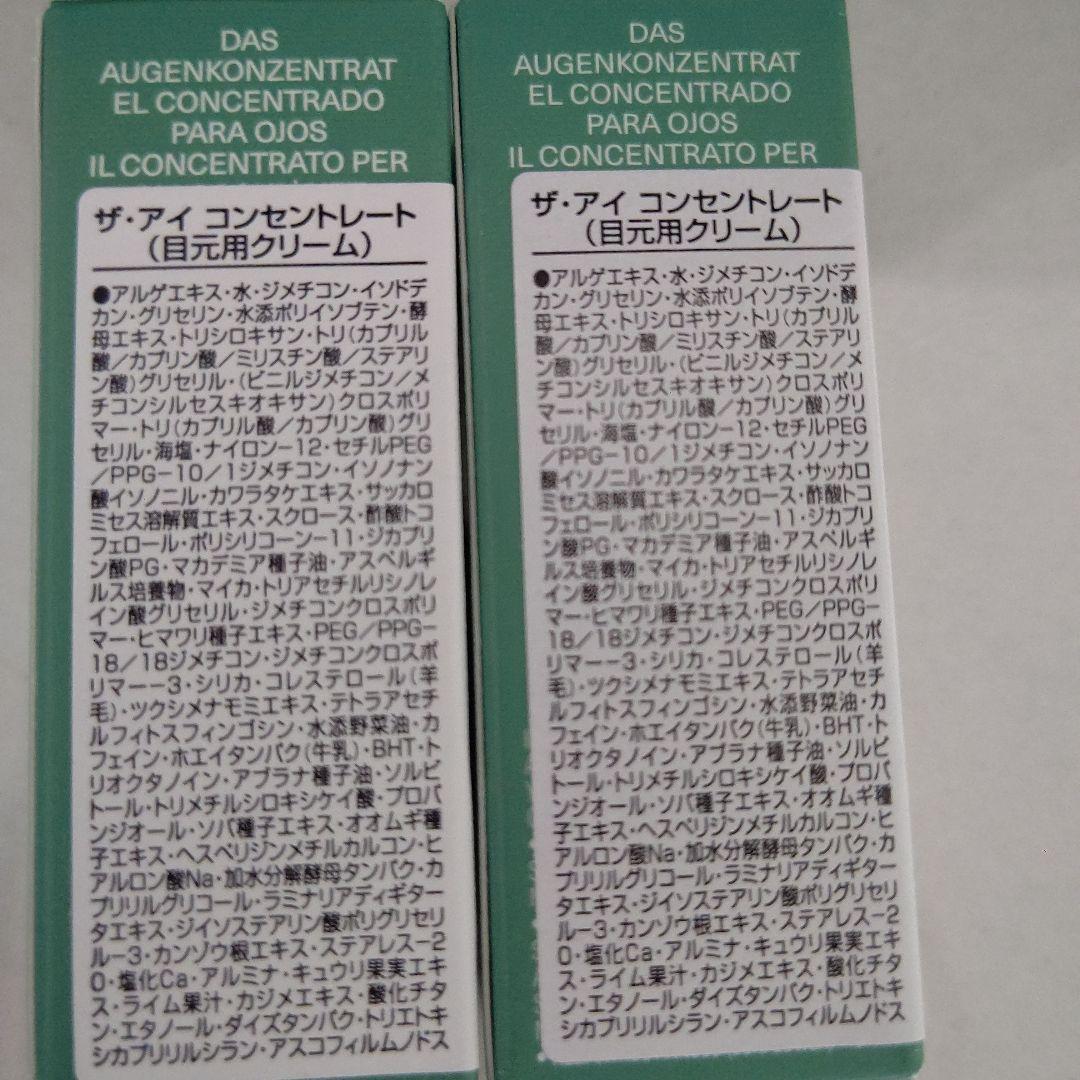 DAS
AUGENKONZENTRAT
EL CONCENTRADO
PARA OJOS
IL CONCENTRATO PER
ザ・アイ コンセントレート
(目元用クリーム)
●アルゲエキス・水・ジメチコン・イソドデ
カン・グリセリン・水添ポリイソブテン・酵
母エキス・トリシロキサン・トリ(カプリル
酸/カプリン酸/ミリスチン酸/ステアリ
ン酸)グリセリル・(ビニルジメチコン/メ
チコンシルセスキオキサン)クロスポリ
マー・トリ(カプリル酸/カプリン酸)グリ
セリル・海塩・ナイロン-12・セチルPEG
/PPG-10/1ジメチコン・イソノナン
酸イソノニル・カワラタケエキス・サッカロ
ミセス溶解質エキス・スクロース・酢酸トコ
フェロール・ポリシリコーン-11・ジカプリ
ン酸PG・マカデミア種子油・アスペルギ
ルス培養物・マイカ・トリアセチルリシノレ
イン酸グリセリル・ジメチコンクロスポリ
マー・ヒマワリ種子エキス・PEG/PPG-
18/18ジメチコン・ジメチコンクロスポ
リマー-3・シリカ・コレステロール(羊
毛)・ツクシメナモミエキス・テトラアセチ
ルフィトスフィンゴシン・水添野菜油・カ
フェイン・ホエイタンパク(牛乳)・BHT・ト
リオクタノイン・アブラナ種子油・ソルビ
トール・トリメチルシロキシケイ酸・プロパ
ンジオール・ソバ種子エキス・オオムギ種
子エキス・ヘスペリジンメチルカルコン・ヒ
アルロン酸Na・加水分解酵母タンパク・カ
プリリルグリコール・ラミナリアディギター
タエキス・ジイソステアリン酸ポリグリセリ
ル-3・カンゾウ根エキス・ステアレス-2
0・塩化Ca・アルミナ・キュウリ果実エキ
ス・ライム果汁・カジメエキス・酸化チタ
ン・エタノール・ダイズタンパク・トリエトキ
シカプリリルシラン・アスコフィルムノドス
DAS
AUGENKONZENTRAT
EL CONCENTRADO
PARA OJOS
IL CONCENTRATO PER
ザ・アイ コンセントレート
(目元用クリーム)
●アルゲエキス・水・ジメチコン・イソドデ
カン・グリセリン・水添ポリイソブテン・酵
母エキス・トリシロキサン・トリ(カプリル
酸/カプリン酸/ミリスチン酸/ステアリ
ン酸)グリセリル・(ビニルジメチコン/メ
チコンシルセスキオキサン)クロスポリ
マー・トリ(カプリル酸/カプリン酸)グリ
セリル・海塩・ナイロン-12・セチルPEG
/PPG-10/1ジメチコン・イソノナン
酸イソノニル・カワラタケエキス・サッカロ
ミセス溶解質エキス・スクロース・酢酸トコ
フェロール・ポリシリコーン-11・ジカプリ
ン酸PG・マカデミア種子油・アスペルギ
ルス培養物・マイカ・トリアセチルリシノレ
イン酸グリセリル・ジメチコンクロスポリ
マー・ヒマワリ種子エキス・PEG/PPG-
18/18ジメチコン・ジメチコンクロスポ
リマー-3・シリカ・コレステロール(羊
毛)・ツクシメナモミエキス・テトラアセチ
ルフィトスフィンゴシン・水添野菜油・カ
フェイン・ホエイタンパク(牛乳)・BHT・ト
リオクタノイン・アブラナ種子油・ソルビ
トール・トリメチルシロキシケイ酸・プロパ
ンジオール・ソバ種子エキス・オオムギ種
子エキス・ヘスペリジンメチルカルコン・ヒ
アルロン酸Na・加水分解酵母タンパク・カ
プリリルグリコール・ラミナリアディギター
タエキス・ジイソステアリン酸ポリグリセリ
ル-3・カンゾウ根エキス・ステアレス-2
0・塩化Ca・アルミナ・キュウリ果実エキ
ス・ライム果汁・カジメエキス・酸化チタ
ン・エタノール・ダイズタンパク・トリエトキ
シカプリリルシラン・アスコフィルムノドス